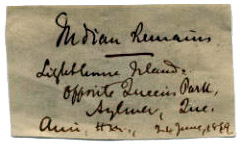 Indian Remains
Lighthouse Island.
Opposite Queen's Park,
Aylmer, Que.
24 June, 18